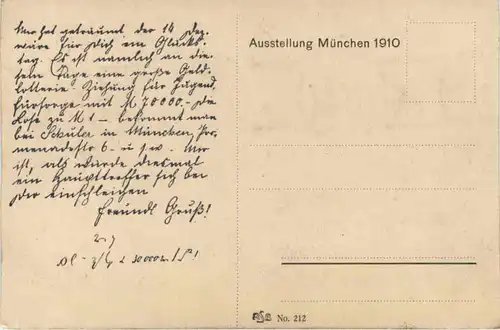 Mir hat geträumt, der 14 Dez.
wäre für Dich ein Glücks-
tag. Es ist nämlich an die-
sem Tage eine große Geld-
lotterie Ziehung für Jugend
fürsorge mit M 70000.- Die
Lose zu M 1 - bekommt man
bei Schüler in München, Pro-
menadestr 6 - u s w. - Mir
ist, als würde diesmal
ein Haupttreffer sich bei
Dir einschleichen
Freundl Gruß!
Ausstellung München 1910
No. 212